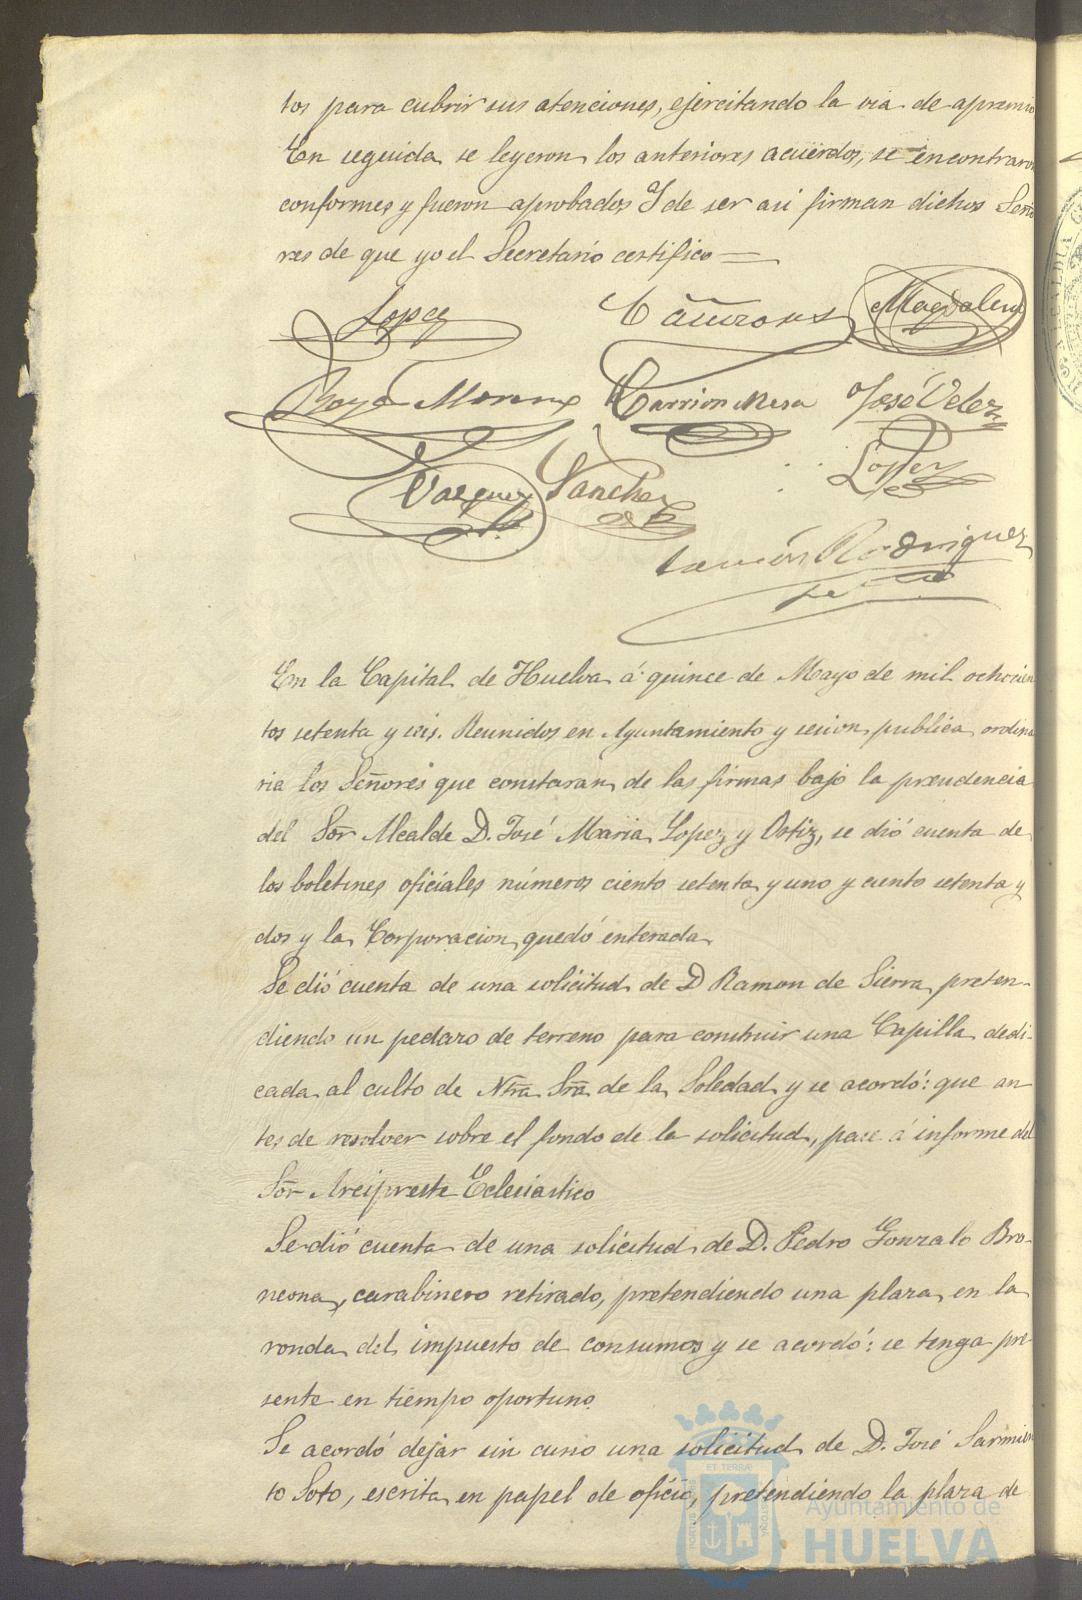 tos para cubrir sus atenciones, ejercitando la via de apremio
En seguida se leyeron los anteriores acuerdos, se encontraron
conformes y fueron aprobados Y de ser asi firman dichos Seño
res de que yo el Secretario certifico
Lopez Magdalena
Moreno Carrion Mesa José Velez
Lopez
Vazquez Sanchez
Ramón Rodriguez
En la Capital de Huelva á quince de Mayo de mil ochocien
tos setenta y seis. Reunidos en Ayuntamiento y sesion publica ordina
ria los Señores que constaran de las firmas bajo la presidencia
del Sõr Alcalde D. José Maria Lopez y Ortiz, se dió cuenta de
los boletines oficiales números ciento setenta y uno y ciento setenta y
dos y la Corporacion quedó enterada
Se dió cuenta de una solicitud de D Ramon de Sierra, preten-
diendo un pedazo de terreno para construir una Capilla dedi-
cada al culto de Ntrã Srã de la Soledad y se acordó: que an
tes de resolver sobre el fondo de la solicitud, pase á informe del
Sõr Arcipreste Eclesiastico
Se dió cuenta de una solicitud de D. Pedro Gonzalo Bro-
neona, carabinero retirado, pretendiendo una plaza en la
ronda del impuesto de consumos y se acordó: se tenga pre
sente en tiempo oportuno.
Se acordó dejar sin curso una solicitud de D. José Sarmien
to Soto, escrita en papel de oficio, pretendiendo la plaza de
Ayuntamiento de
HUELVA